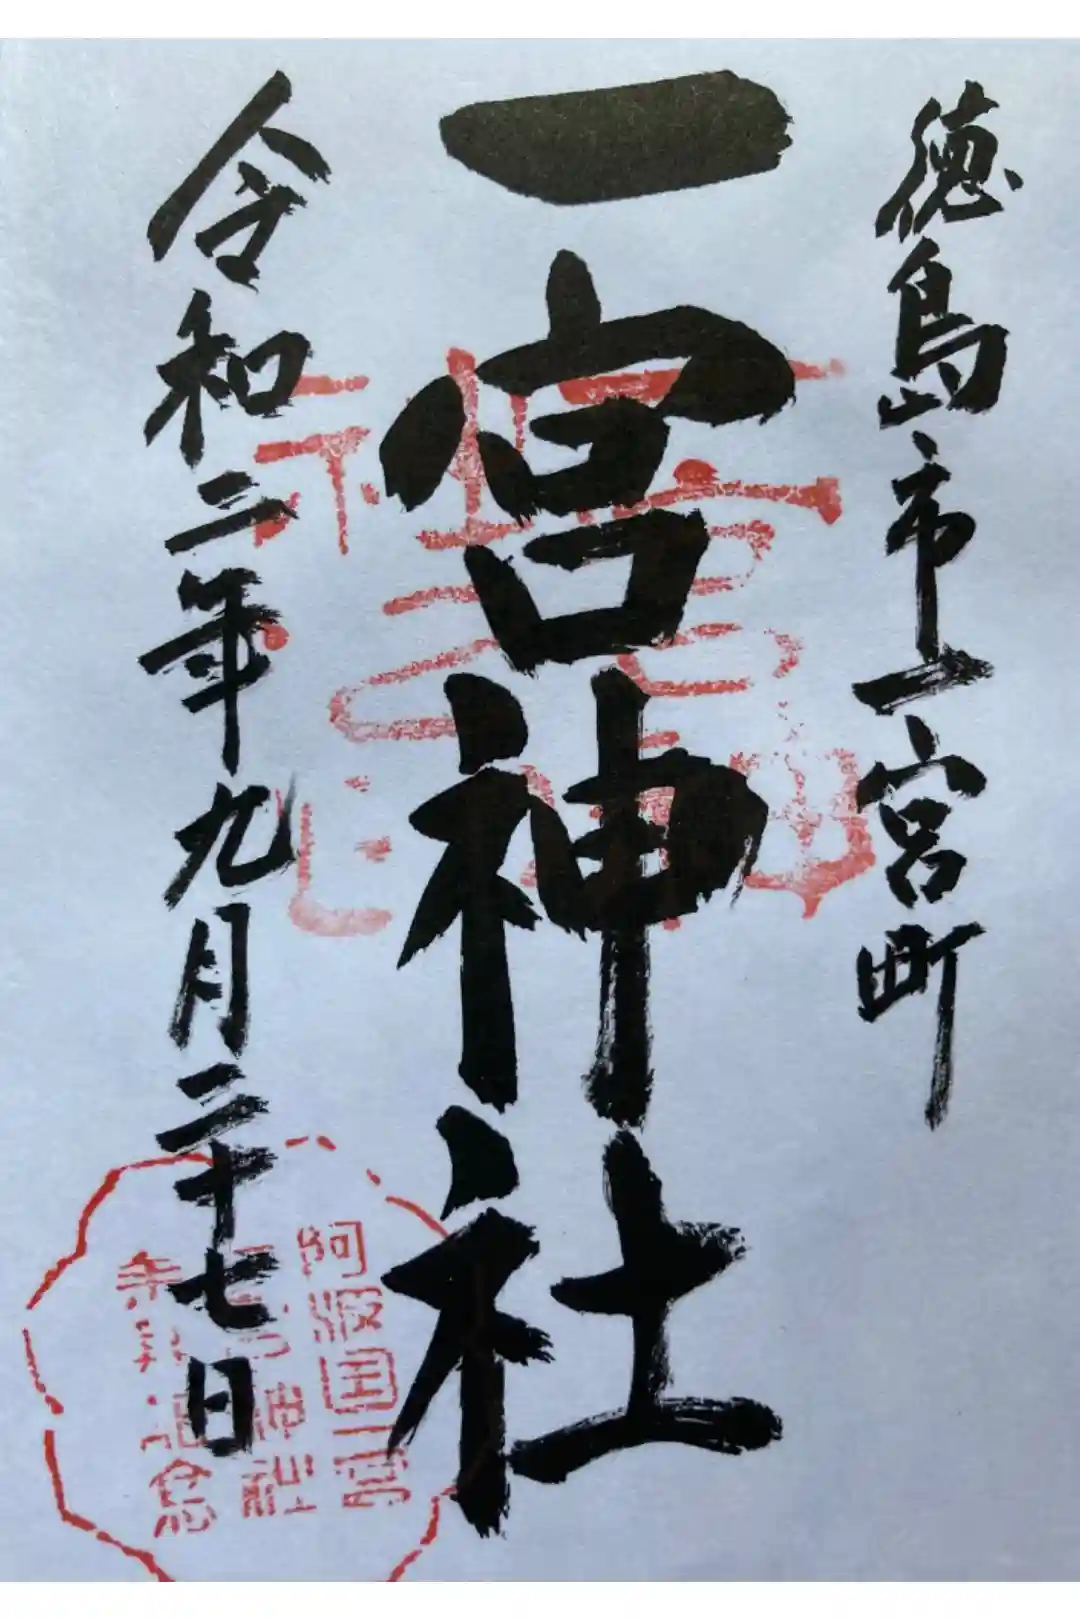 徳島市一宮町
一宮神社
令和二年九月二十七日
阿波国一宮
神社